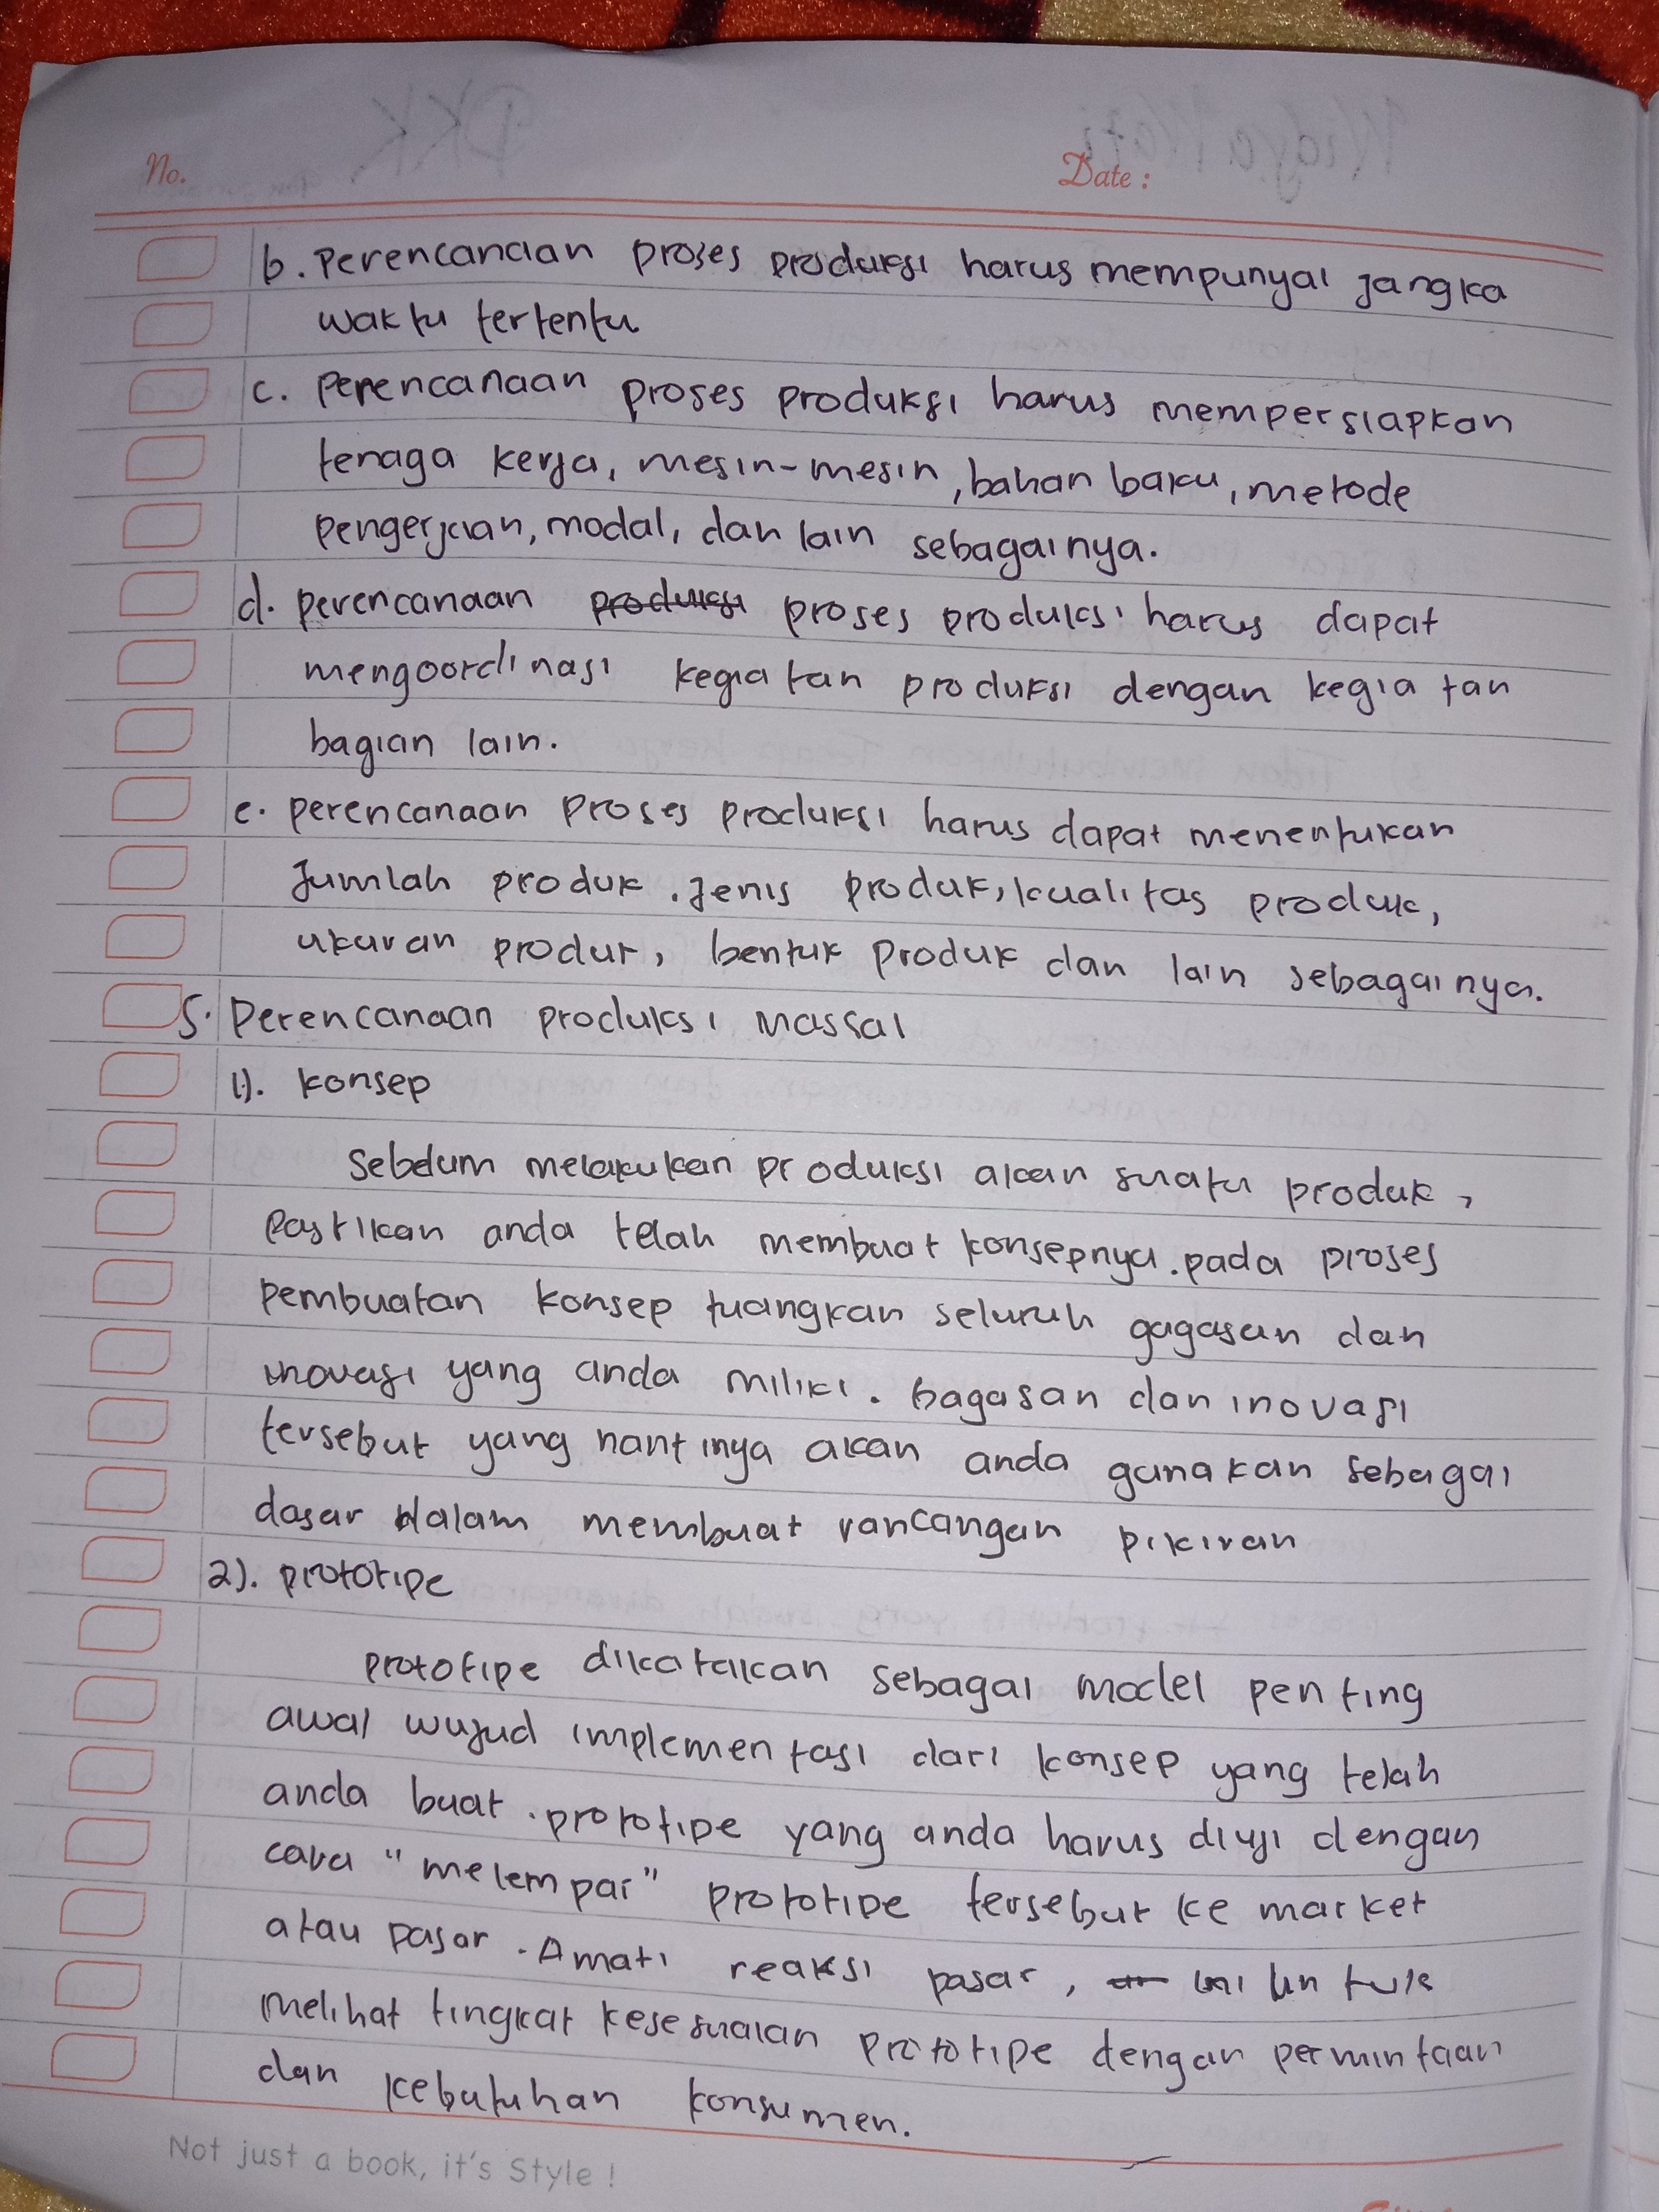 No.
Date :
b. Perencanaan proses produksi harus mempunyai jangka
waktu tertentu
c. Perencanaan proses produksi harus mempersiapkan
tenaga kerja, mesin-mesin, bahan baku, metode
pengerjaan, modal, dan lain sebagainya.
d. perencanaan produksi proses produksi harus dapat
mengoordinasi kegiatan produksi dengan kegiatan
bagian lain.
e. perencanaan proses produksi harus dapat menentukan
Jumlah produk. Jenis produk, kualitas produk,
ukuran produk, bentuk produk dan lain sebagainya.
5. Perencanaan produksi Massal
1). konsep
Sebelum melakukan produksi akan suatu produk,
pastikan anda telah membuat konsepnya. pada proses
pembuatan konsep tuangkan seluruh gagasan dan
inovasi yang anda miliki. bagasan dan inovasi
tersebut yang nantinya akan anda gunakan sebagai
dasar dalam membuat rancangan pikiran
2). prototipe
prototipe dikatakan sebagai model penting
awal wujud implementasi dari konsep yang telah
anda buat. prototipe yang anda harus diuji dengan
cara "melempar" prototipe tersebut ke market
atau pasar. Amati reaksi pasar, ini untuk
melihat tingkat kesesuaian prototipe dengan permintaan
dan kebutuhan konsumen.
Not just a book, it's Style !